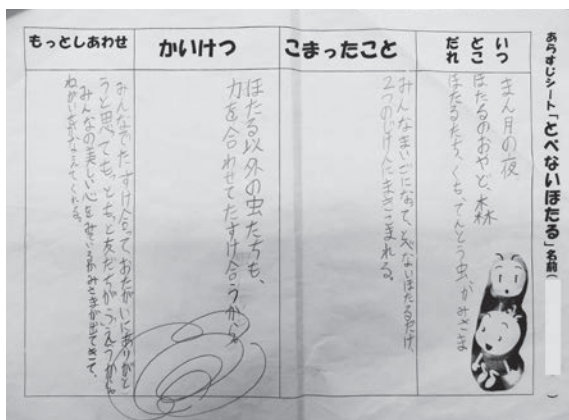 あらすじシート「とべないほたる」名前（　　　）
いつ
どこ
だれ
まん月の夜
ほたるのおやど、森
ほたるたち、くも、てんとう虫、かみさま
こまったこと
みんなまいごになって、とべないほたるだけ、
2つのじけんにまきこまれる。
かいけつ
ほたる以外の虫たちも、
力を合わせてたすけ合うから
もっとしあわせ
みんなでたすけ合っておたがいにありがと
うと思っても、ともっと友だちがふえるから
みんなの美しい心を かみさまが出てきて、
ねがいをかなえてくれる。